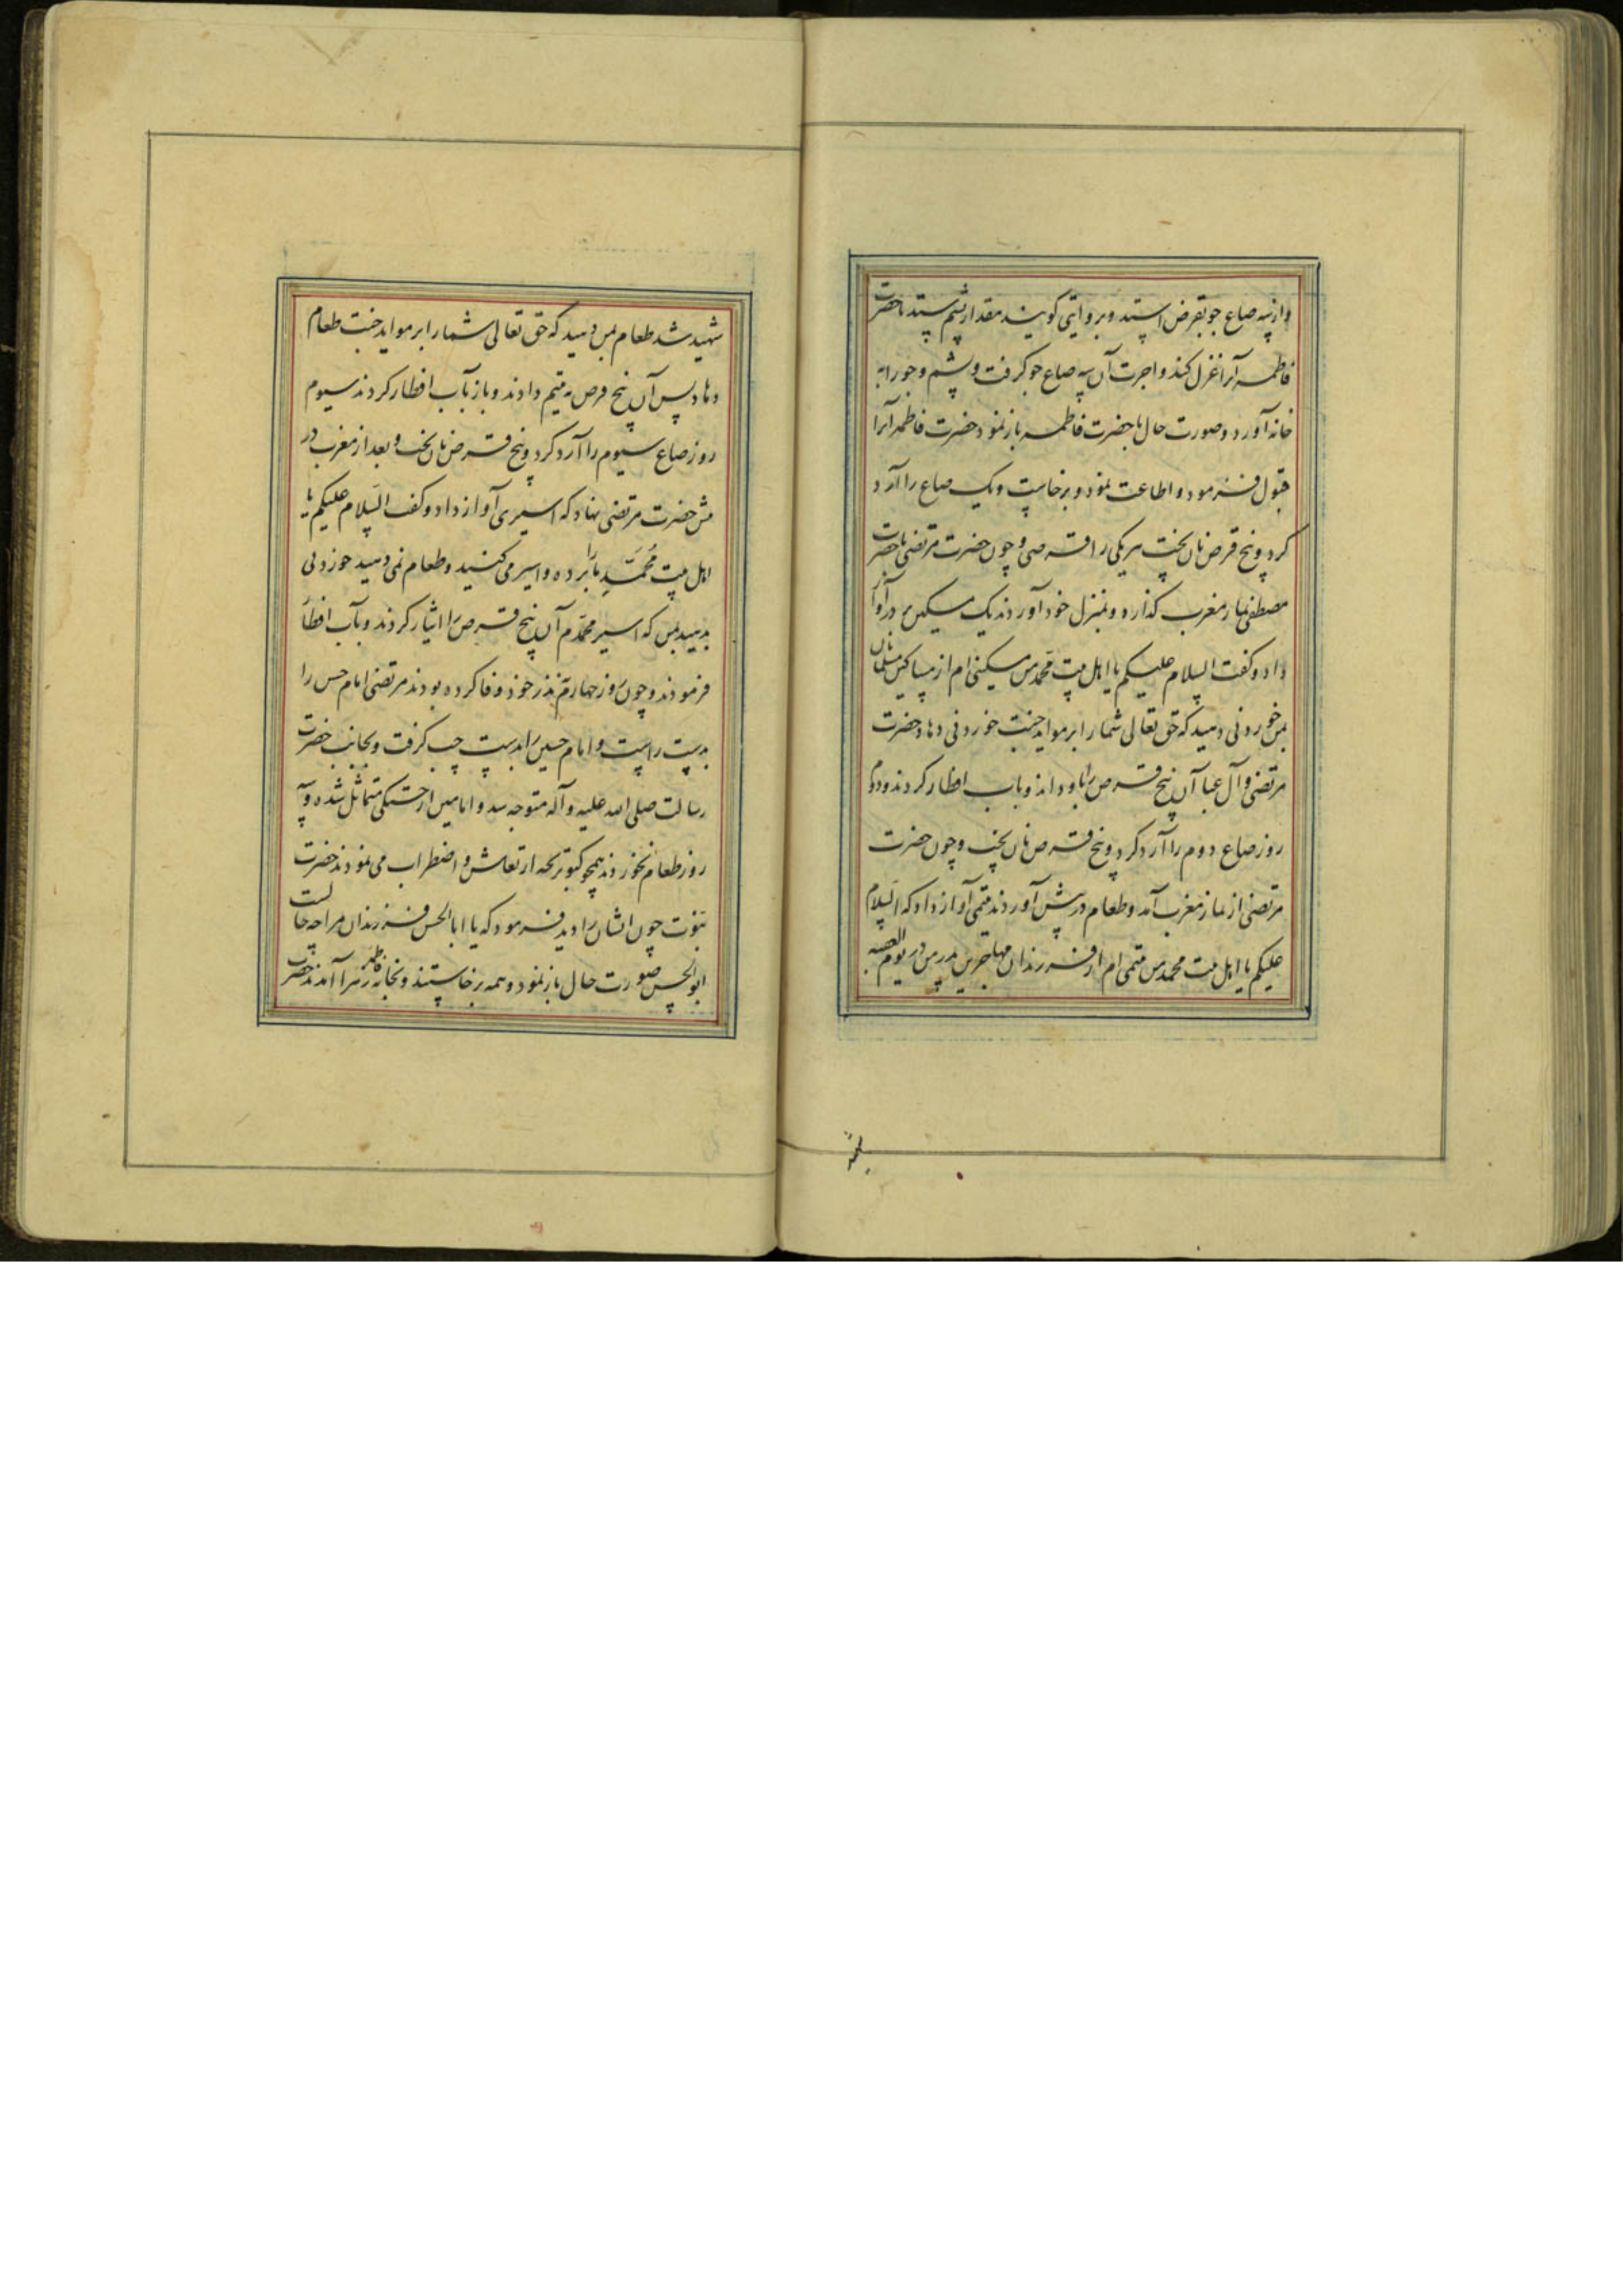 و از سه صاع جو بقرض استد و بروایتی گویند مقدار پشم ستد تا حضرت
فاطمه آنرا غزل کند و اجرت آن سه صاع جو گرفت و پشم و جو را به
خانه آورد و صورت حال با حضرت فاطمه باز نمود حضرت فاطمه آنرا
قبول فرمود و اطاعت نمود و برخاست و یک صاع را آرد
کرد و پنج قرص نان پخت هر یکی را قرصی و چون حضرت مرتضی با حضرت
مصطفی نماز مغرب گذارد و بمنزل خود آوردند یک مسکین بر در آواز
داد و گفت السلام علیکم یا اهل بیت محمد من مسکینی ام از مساکین مسلمانان
بمن خوردنی دهید که حق تعالی شما را بر مواید جنت خوردنی دهاد حضرت
مرتضی و آل عبا آن پنج قرص را باو دادند و باب افطار کردند و دوم
روز صاع دوم را آرد کرد و پنج قرص نان پخت و چون حضرت
مرتضی از نماز مغرب آمد و طعام در پیش آوردند یتیمی آواز داد که السلام
علیکم یا اهل بیت محمد من یتیمی ام از فرزندان مهاجرین پدر من در یوم العقبه
شهید شد طعام بمن دهید که حق تعالی شما را بر مواید جنت طعام
دهاد پس آن پنج قرص به یتیم دادند و باز بآب افطار کردند سیوم
روز صاع سیوم را آرد کرد و پنج قرص نان پخت و بعد از مغرب در
پیش حضرت مرتضی نهاد که اسیری آواز داد و گفت السلام علیکم یا
اهل بیت مُحَمَّدٍ ما را برده و اسیر می کنید و طعام نمی دهید خوردنی
بدهید بمن که اسیر محمدم آن پنج قرص را ایثار کردند و بآب افطار
فرمودند و چون روز چهارم نذر خود وفا کرده بودند مرتضی امام حسن را
بدست راست و امام حسین را بدست چپ گرفت و بجانب حضرت
رسالت صلی الله علیه و آله متوجه شد و امامین از گرسنگی متماثل شده و سه
روز طعام نخوردند همچو کبوتر بچه ارتعاش و اضطراب می نمودند حضرت
نبوت چون ایشان را دید فرمود که یا ابا الحسن فرزندان مرا چه حالست
ابو الحسن صورت حال باز نمود و همه برخاستند و بخانه فاطمه زهرا آمدند حضرت